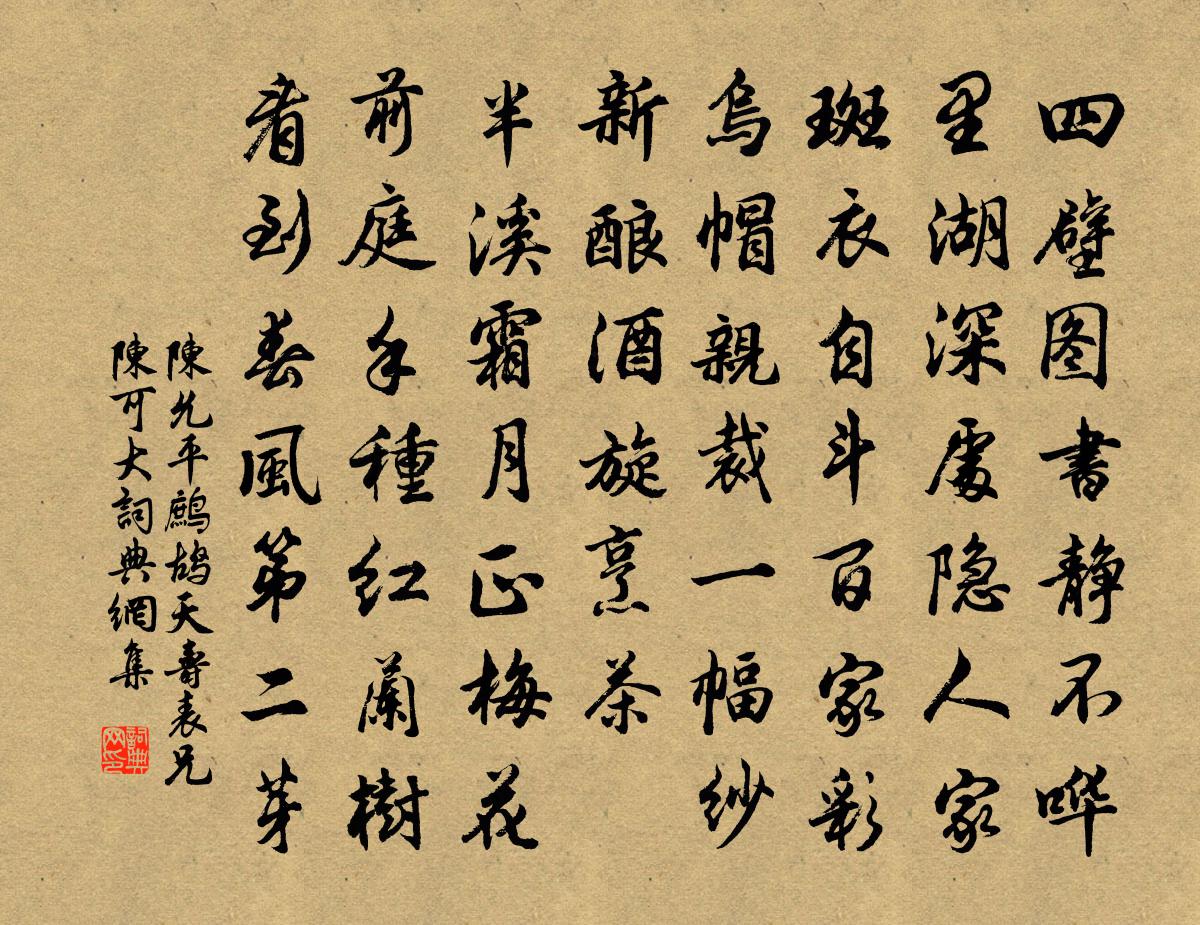 四壁图書静不哗
里湖深處隐人家
斑衣自斗百家彩
烏帽親裁一幅紗
新酿酒旋烹茶
半溪霜月正梅花
前庭手種红蘭樹
看到春風第二芽
陳允平鷓鸪天壽表兄
陳可大詞典網集
詞典网印